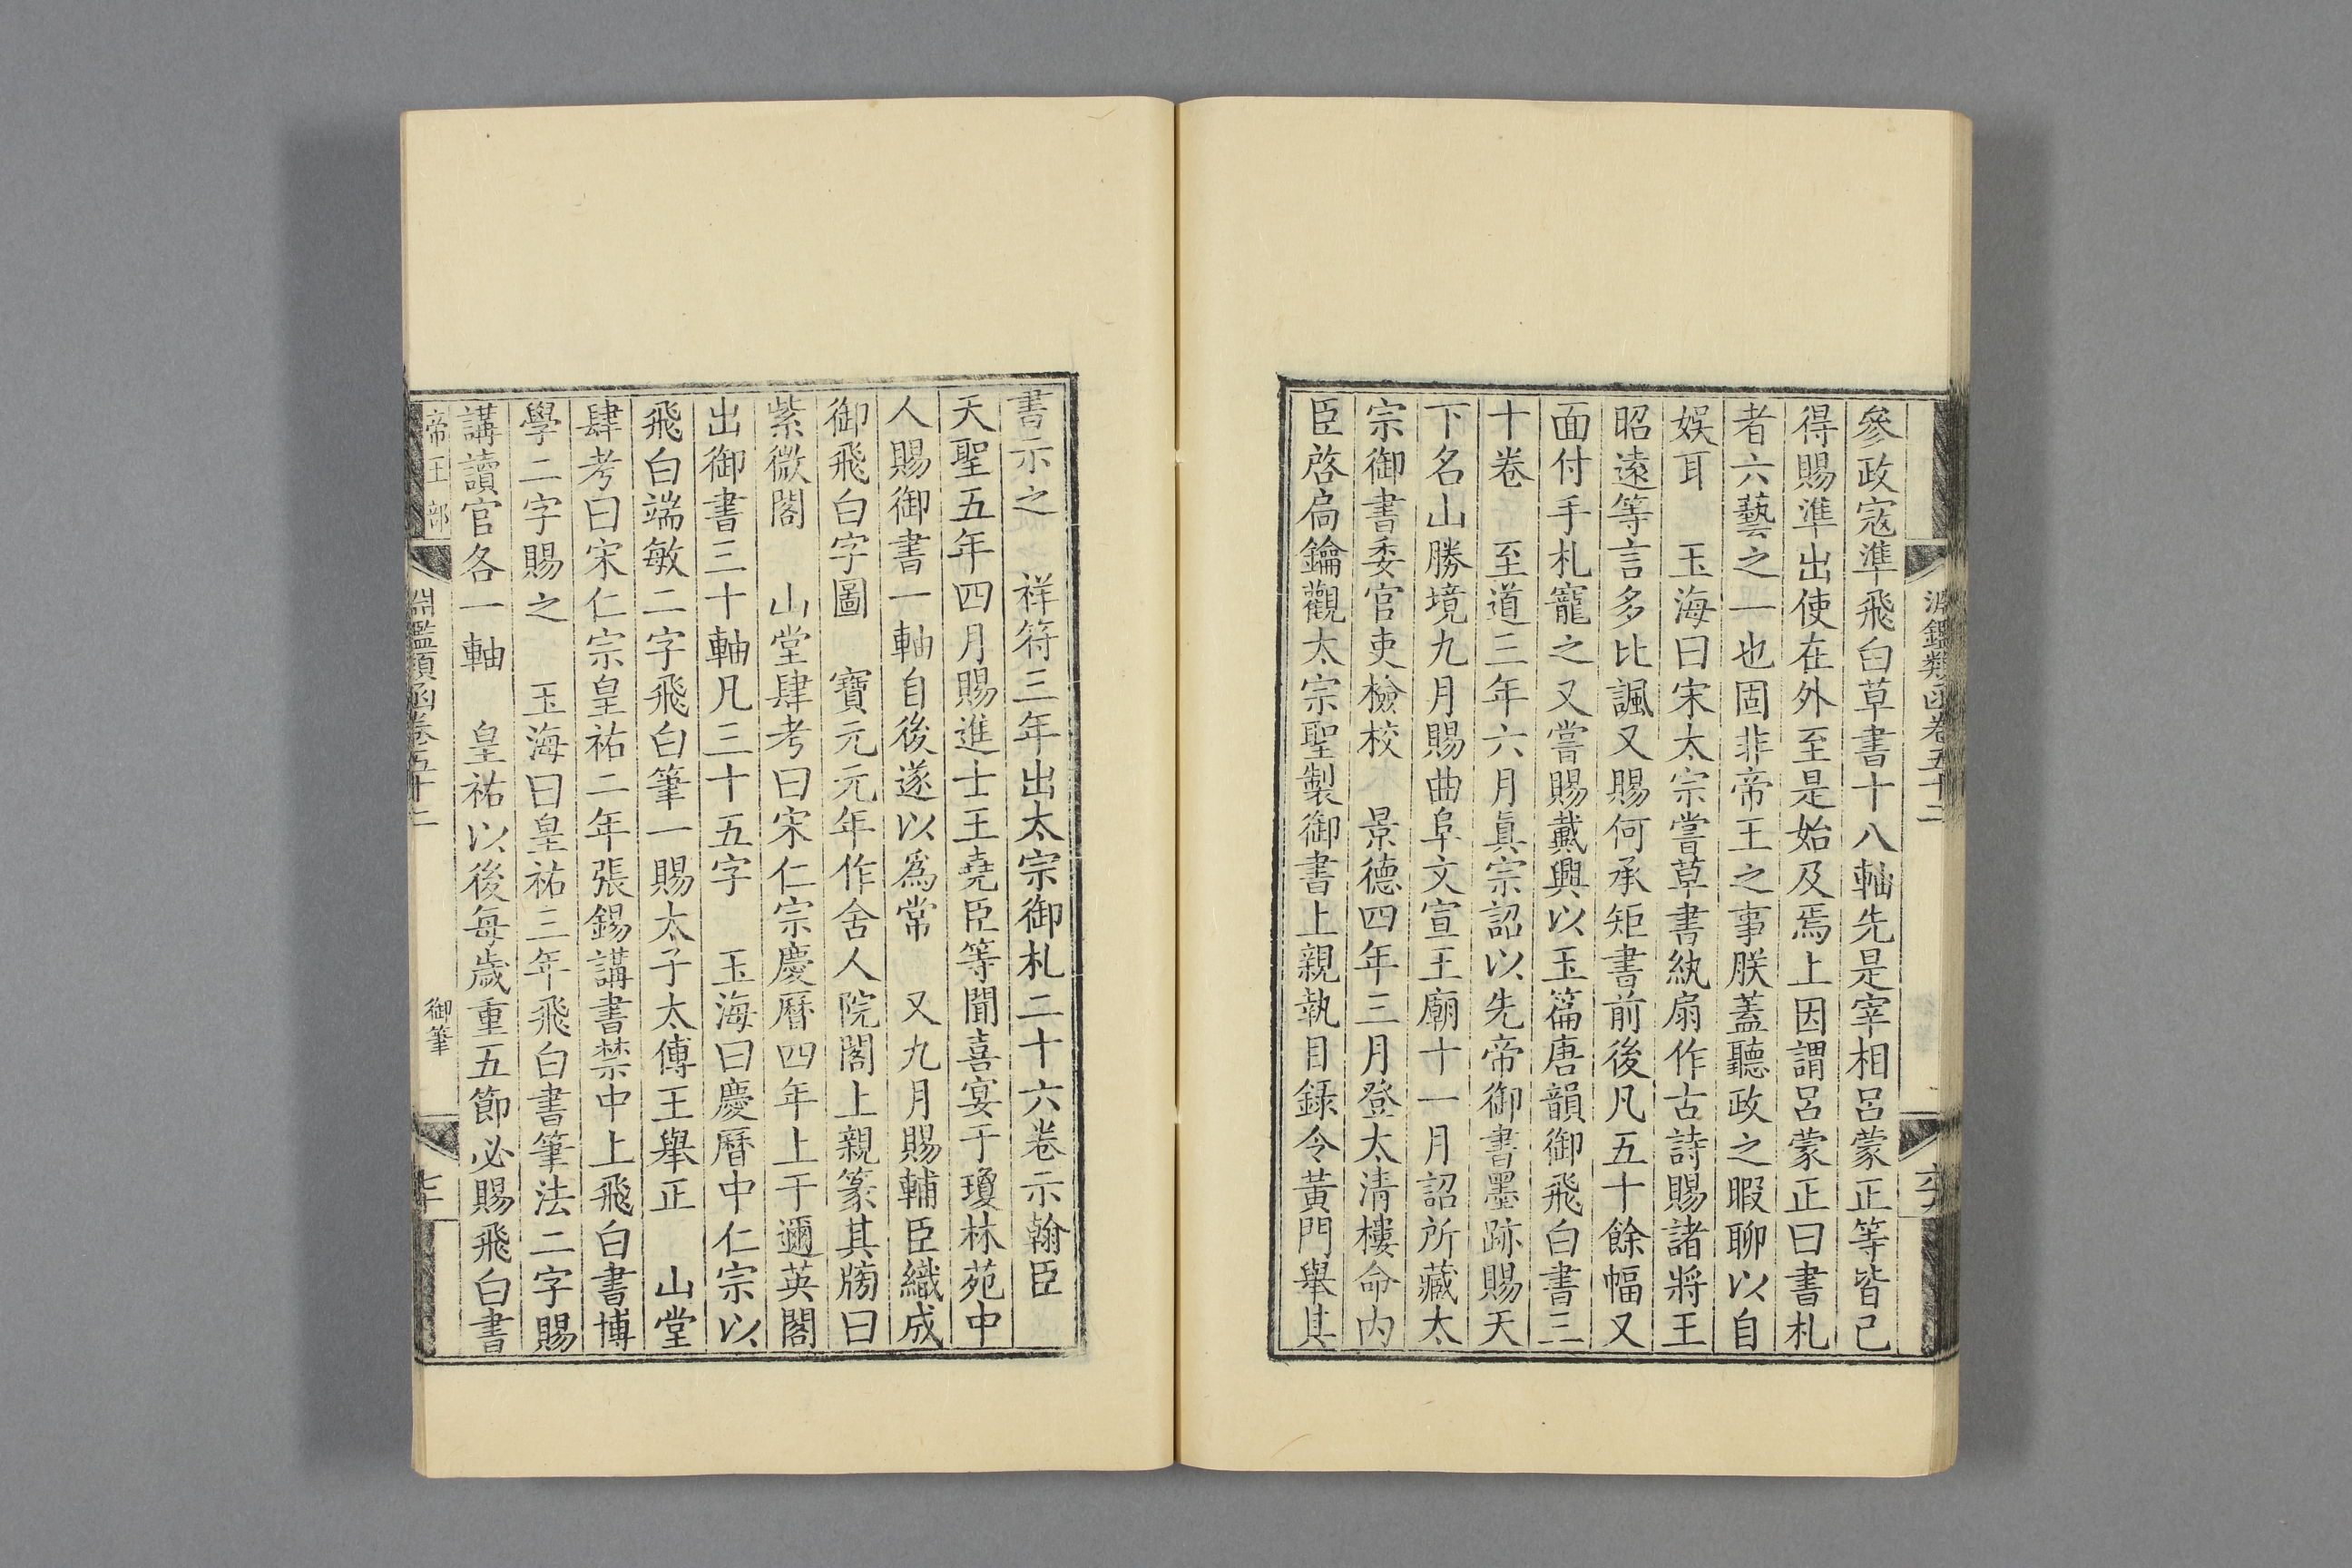 淵鑑類函卷五十二
參政寇準飛白草書十八軸先是宰相呂蒙正等皆已
得賜準出使在外至是始及焉上因謂呂蒙正曰書札
者六藝之一也固非帝王之事朕蓋聽政之暇聊以自
娛耳 玉海曰宋太宗嘗草書紈扇作古詩賜諸將王
昭遠等言多比諷又賜何承矩書前後凡五十餘幅又
面付手札寵之又嘗賜戴興以玉篇唐韻御飛白書三
十卷 至道三年六月眞宗詔以先帝御書墨跡賜天
下名山勝境九月賜曲阜文宣王廟十一月詔所藏太
宗御書委官吏檢校 景德四年三月登太清樓命內
臣啓扃鑰觀太宗聖製御書上親執目錄令黃門舉其
書示之 祥符三年出太宗御札二十六卷示翰臣
天聖五年四月賜進士王堯臣等聞喜宴于瓊林苑中
人賜御書一軸自後遂以爲常 又九月賜輔臣織成
御飛白字圖 寶元元年作舍人院閣上親篆其牓曰
紫微閣 山堂肆考曰宋仁宗慶曆四年上于邇英閣
出御書三十軸凡三十五字 玉海曰慶曆中仁宗以
飛白端敏二字飛白筆一賜太子太傅王舉正 山堂
肆考曰宋仁宗皇祐二年張錫講書禁中上飛白書博
學二字賜之 玉海曰皇祐三年飛白書筆法二字賜
講讀官各一軸 皇祐以後每歲重五節必賜飛白書
帝王部 淵鑑類函卷五十二 御筆